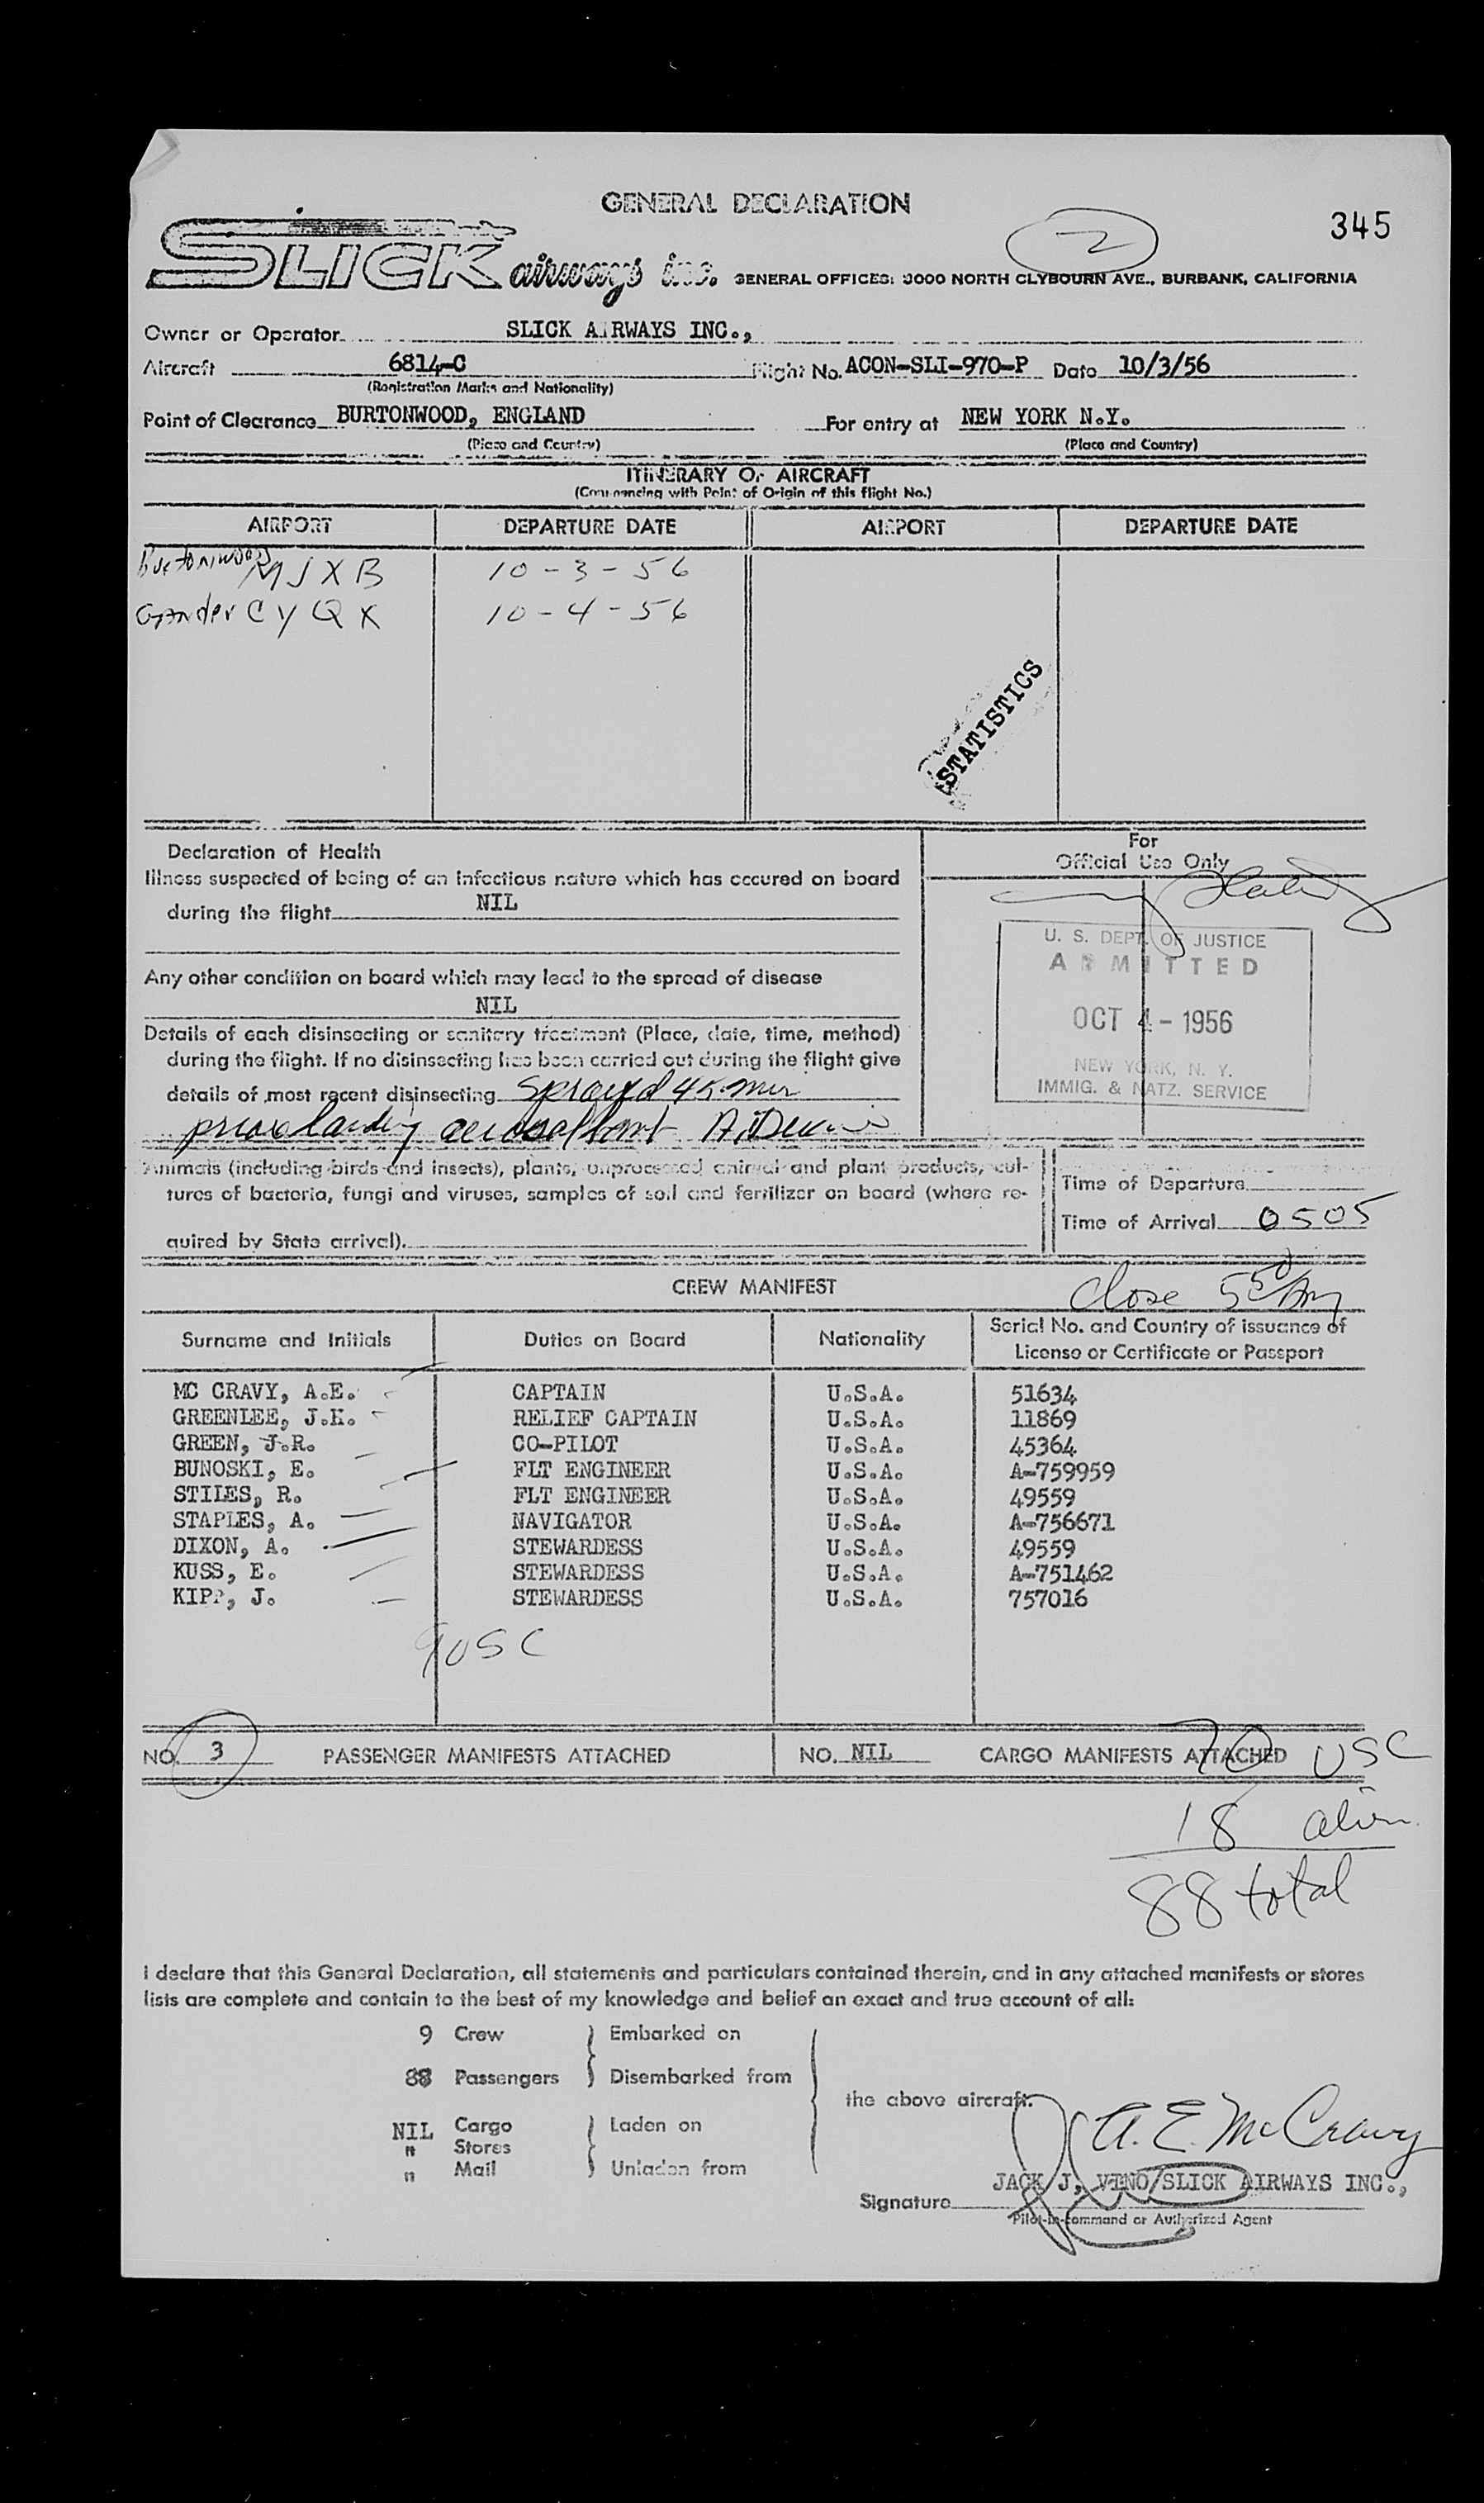 GENERAL DECLARATION
345
2
SLICK airways inc. GENERAL OFFICES: 3000 NORTH CLYBOURN AVE., BURBANK, CALIFORNIA
Owner or Operator SLICK AIRWAYS INC.,
Aircraft 6814-C Flight No. ACON-SLI-970-P Date 10/3/56
(Registration Marks and Nationality)
Point of Clearance BURTONWOOD, ENGLAND For entry at NEW YORK N.Y.
(Place and Country) (Place and Country)
ITINERARY OF AIRCRAFT
(Commencing with Point of Origin of this flight No.)
AIRPORT DEPARTURE DATE AIRPORT DEPARTURE DATE
Burtonwood MJXB 10-3-56
Gander CYQX 10-4-56
STATISTICS
Declaration of Health
Illness suspected of being of an infectious nature which has occured on board
during the flight NIL
Any other condition on board which may lead to the spread of disease
NIL
Details of each disinsecting or sanitary treatment (Place, date, time, method)
during the flight. If no disinsecting has been carried out during the flight give
details of most recent disinsecting sprayed 45 min
prior landing
For
Official Use Only
U. S. DEPT. OF JUSTICE
ADMITTED
OCT 4 - 1956
NEW YORK, N. Y.
IMMIG. & NATZ. SERVICE
Animals (including birds and insects), plants, unprocessed animal and plant products, cul-
tures of bacteria, fungi and viruses, samples of soil and fertilizer on board (where re-
quired by State arrival).
Time of Departure
Time of Arrival 0505
CREW MANIFEST
close 550
Surname and Initials Duties on Board Nationality Serial No. and Country of issuance of
License or Certificate or Passport
MC CRAVY, A.E. CAPTAIN U.S.A. 51634
GREENLEE, J.K. RELIEF CAPTAIN U.S.A. 11869
GREEN, J.R. CO-PILOT U.S.A. 45364
BUNOSKI, E. FLT ENGINEER U.S.A. A-759959
STILES, R. FLT ENGINEER U.S.A. 49559
STAPLES, A. NAVIGATOR U.S.A. A-756671
DIXON, A. STEWARDESS U.S.A. 49559
KUSS, E. STEWARDESS U.S.A. A-751462
KIPP, J. STEWARDESS U.S.A. 757016
9 USC
NO. 3 PASSENGER MANIFESTS ATTACHED NO. NIL CARGO MANIFESTS ATTACHED
70 USC
18 alien
88 total
I declare that this General Declaration, all statements and particulars contained therein, and in any attached manifests or stores
lists are complete and contain to the best of my knowledge and belief an exact and true account of all:
9 Crew Embarked on
88 Passengers Disembarked from
the above aircraft.
NIL Cargo Laden on
" Stores
" Mail Unladen from
A. E. McCravy
JACK J. VINO/SLICK AIRWAYS INC.,
Signature
Pilot-in-command or Authorized Agent